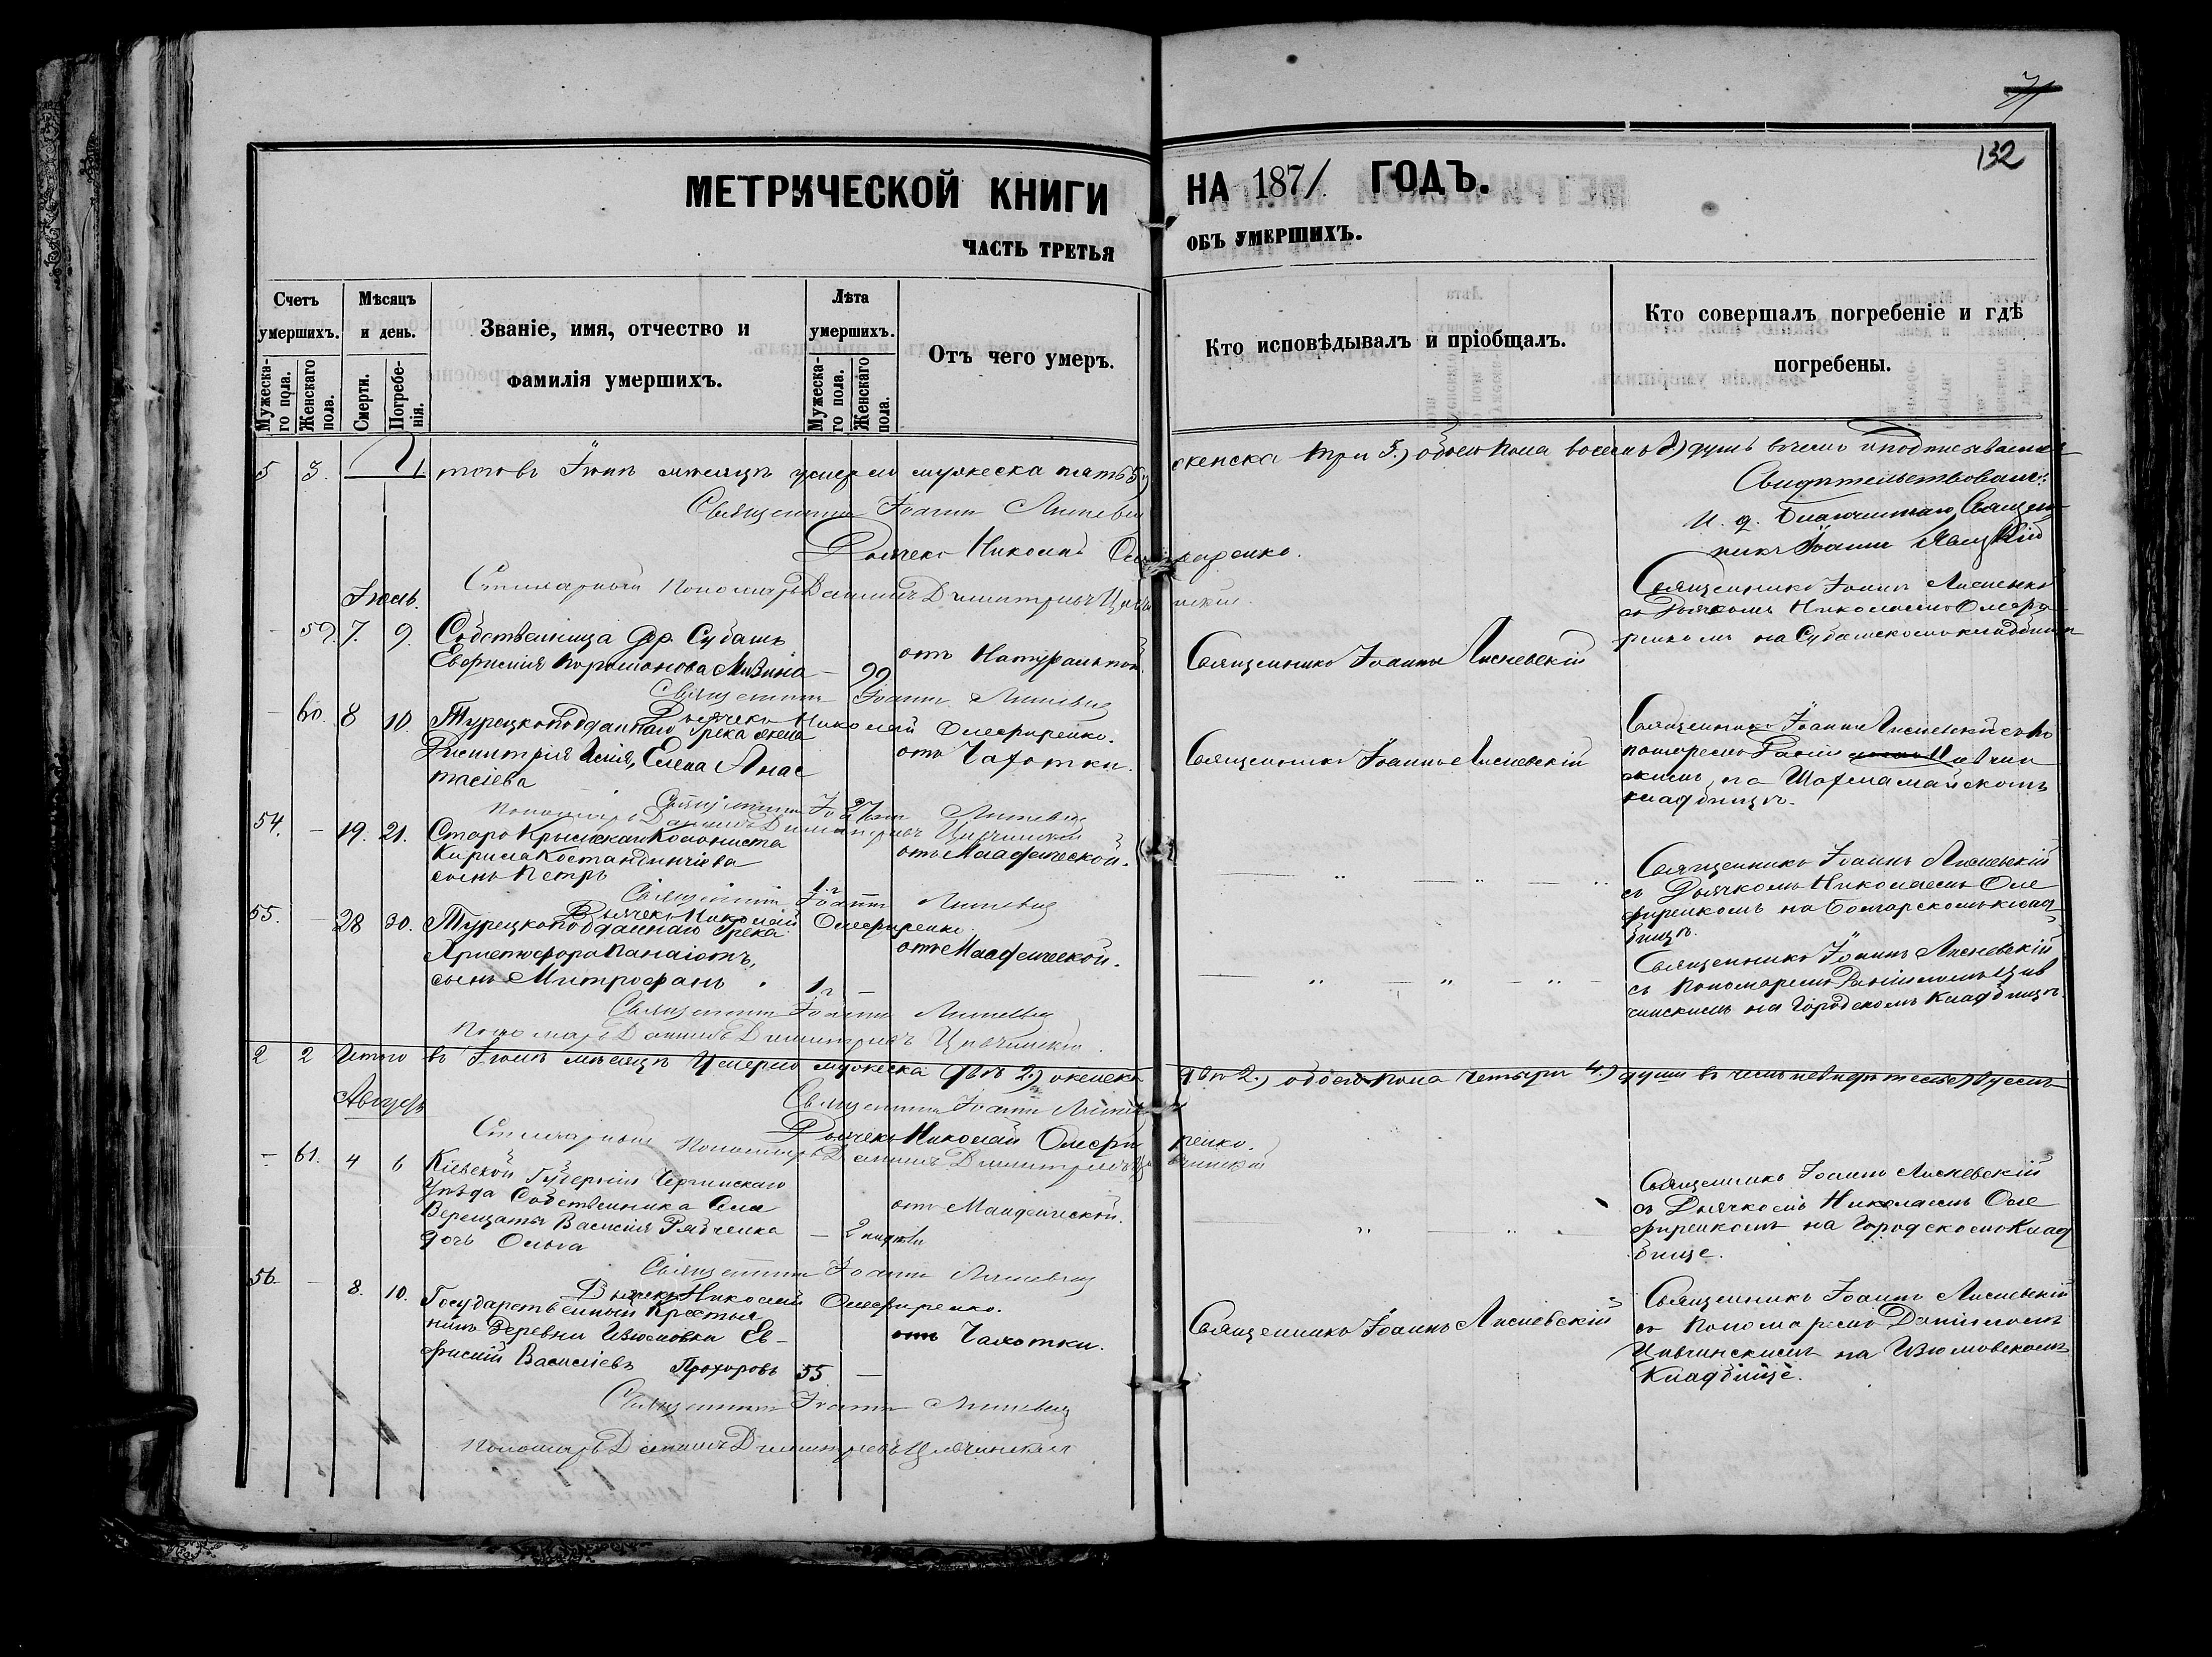 71
132
МЕТРИЧЕСКОЙ КНИГИ НА 1871 ГОДЪ.
ЧАСТЬ ТРЕТЬЯ ОБЪ УМЕРШИХЪ.
Счетъ умершихъ.
Мужеска-го пола.
Женскаго пола.
Мѣсяцъ и день.
Смерти.
Погребе-нія.
Званіе, имя, отчество и фамилія умершихъ.
Лѣта умершихъ.
Мужеска-го пола.
Женскаго пола.
Отъ чего умеръ.
Кто исповѣдывалъ и пріобщалъ.
Кто совершалъ погребеніе и гдѣ погребены.
5 3. Итого въ Іюнѣ мѣсяцѣ умерло мужеска пять 5.) женска три 3.) обоего пола восемь 8.) душъ въ чемъ и подписываемся
Священникъ Іоаннъ Лисневскій
Дьячекъ Николай Олефиренко.
Стихарный Пономарь Даніилъ Димитріевъ Цивчинскій.
Свидѣтельствовалъ:
И. д. Благочиннаго, Священ-
никъ Іоаннъ
Іюль.
– 59. 7. 9. Собственница дер. Субашъ
Евфимія Мизина – 99
отъ Натуральной.
Священникъ Іоаннъ Лисневскій
Священникъ Іоаннъ Лисневскій
съ Дьячкомъ Николаемъ Олефи-
ренкомъ на Субашскомъ кладбищѣ
Священникъ Іоаннъ Лисневскій
Дьячекъ Николай Олефиренко.
– 60. 8 10. Турецкоподданнаго Грека жена
Димитрія Елена Анас
тасіева
27
отъ Чахотки.
Священникъ Іоаннъ Лисневскій
Священникъ Іоаннъ Лисневскій съ По
номаремъ Даніи Цивчин
скимъ, на
кладбищѣ.
Священникъ Іоаннъ Лисневскій
Пономарь Даніилъ Димитріевъ Цивчинскій
54. – 19. 21. Старо Крымскаго Колониста
Кирила
сынъ Петръ
1 г –
отъ Младенческой.
— „ — „ — „
Священникъ Іоаннъ Лисневскій
съ Дьячкомъ Николаемъ Оле
фиренкомъ на Болгарскомъ клад
бищѣ.
Священникъ Іоаннъ Лисневскій
Дьячекъ Николай Олефиренко
55. – 28 30. Турецкоподданнаго Грека
Христофора Панаіотъ,
сынъ Митрофанъ. 1 г –
отъ Младенческой.
— „ — „ — „ —
Священникъ Іоаннъ Лисневскій
съ Пономаремъ Даніиломъ Цив
чинскимъ на Городскомъ Кладбищѣ.
Священникъ Іоаннъ Лисневскій
Пономарь Даніилъ Димитріевъ Цивчинскій.
2 2 Итого въ Іюлѣ мѣсяцѣ Умерло мужеска двѣ 2.) женска двѣ 2.) обоего пола четыри 4.) души въ чемъ
Священникъ Іоаннъ Лисневскій
Дьячекъ Николай Олефиренко.
Стихарный Пономарь Даніилъ Димитріевъ Цивчинскій
Августъ
– 61. 4 6 Кіевской Губерніи
Уѣзда Собственника Села
Василія Рябченка
дочь Ольга
– 2 недѣли
отъ Младенческой.
„ — „
Священникъ Іоаннъ Лисневскій
съ Дьячкомъ Николаемъ Оле
фиренкомъ на Городскомъ Клад
бище.
Священникъ Іоаннъ Лисневскій
Дьячекъ Николай Олефиренко.
56. – 8. 10. Государственный Крестья
нинъ Деревни Изюмовки Ев-
фимій Васильевъ Прохоровъ 55 –
отъ Чахотки.
Священникъ Іоаннъ Лисневскій
Священникъ Іоаннъ Лисневскій
съ Пономаремъ Даніиломъ
Цивчинскимъ на Изюмовскомъ
Кладбище.
Священникъ Іоаннъ Лисневскій
Пономарь Даніилъ Димитріевъ Цивчинскій